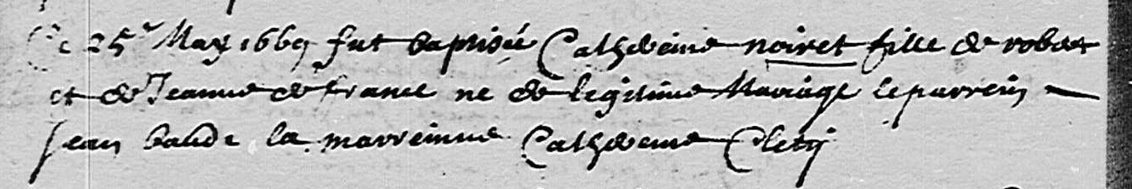 Le 25e May 1669 fut baptisée Catherine noiret fille de robert
et de Jeanne de france ne de legitime Mariage le parrein
Jean baude la marreinne Catherine Clety